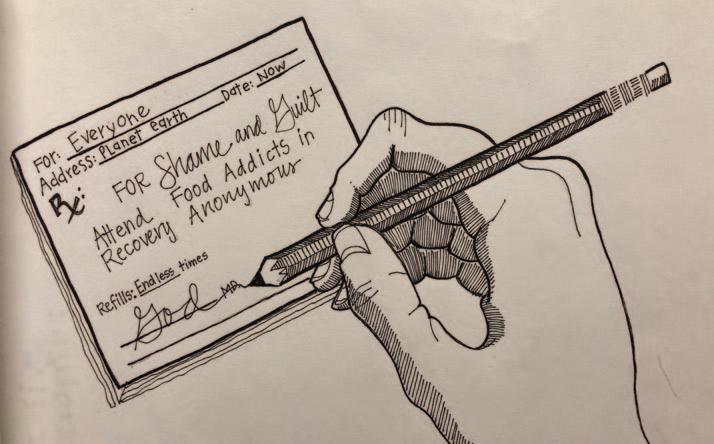 For: Everyone
Address: Planet earth Date: Now
Rx: FOR Shame and Guilt
Attend Food Addicts in
Recovery Anonymous
Refills: Endless times
God MD.